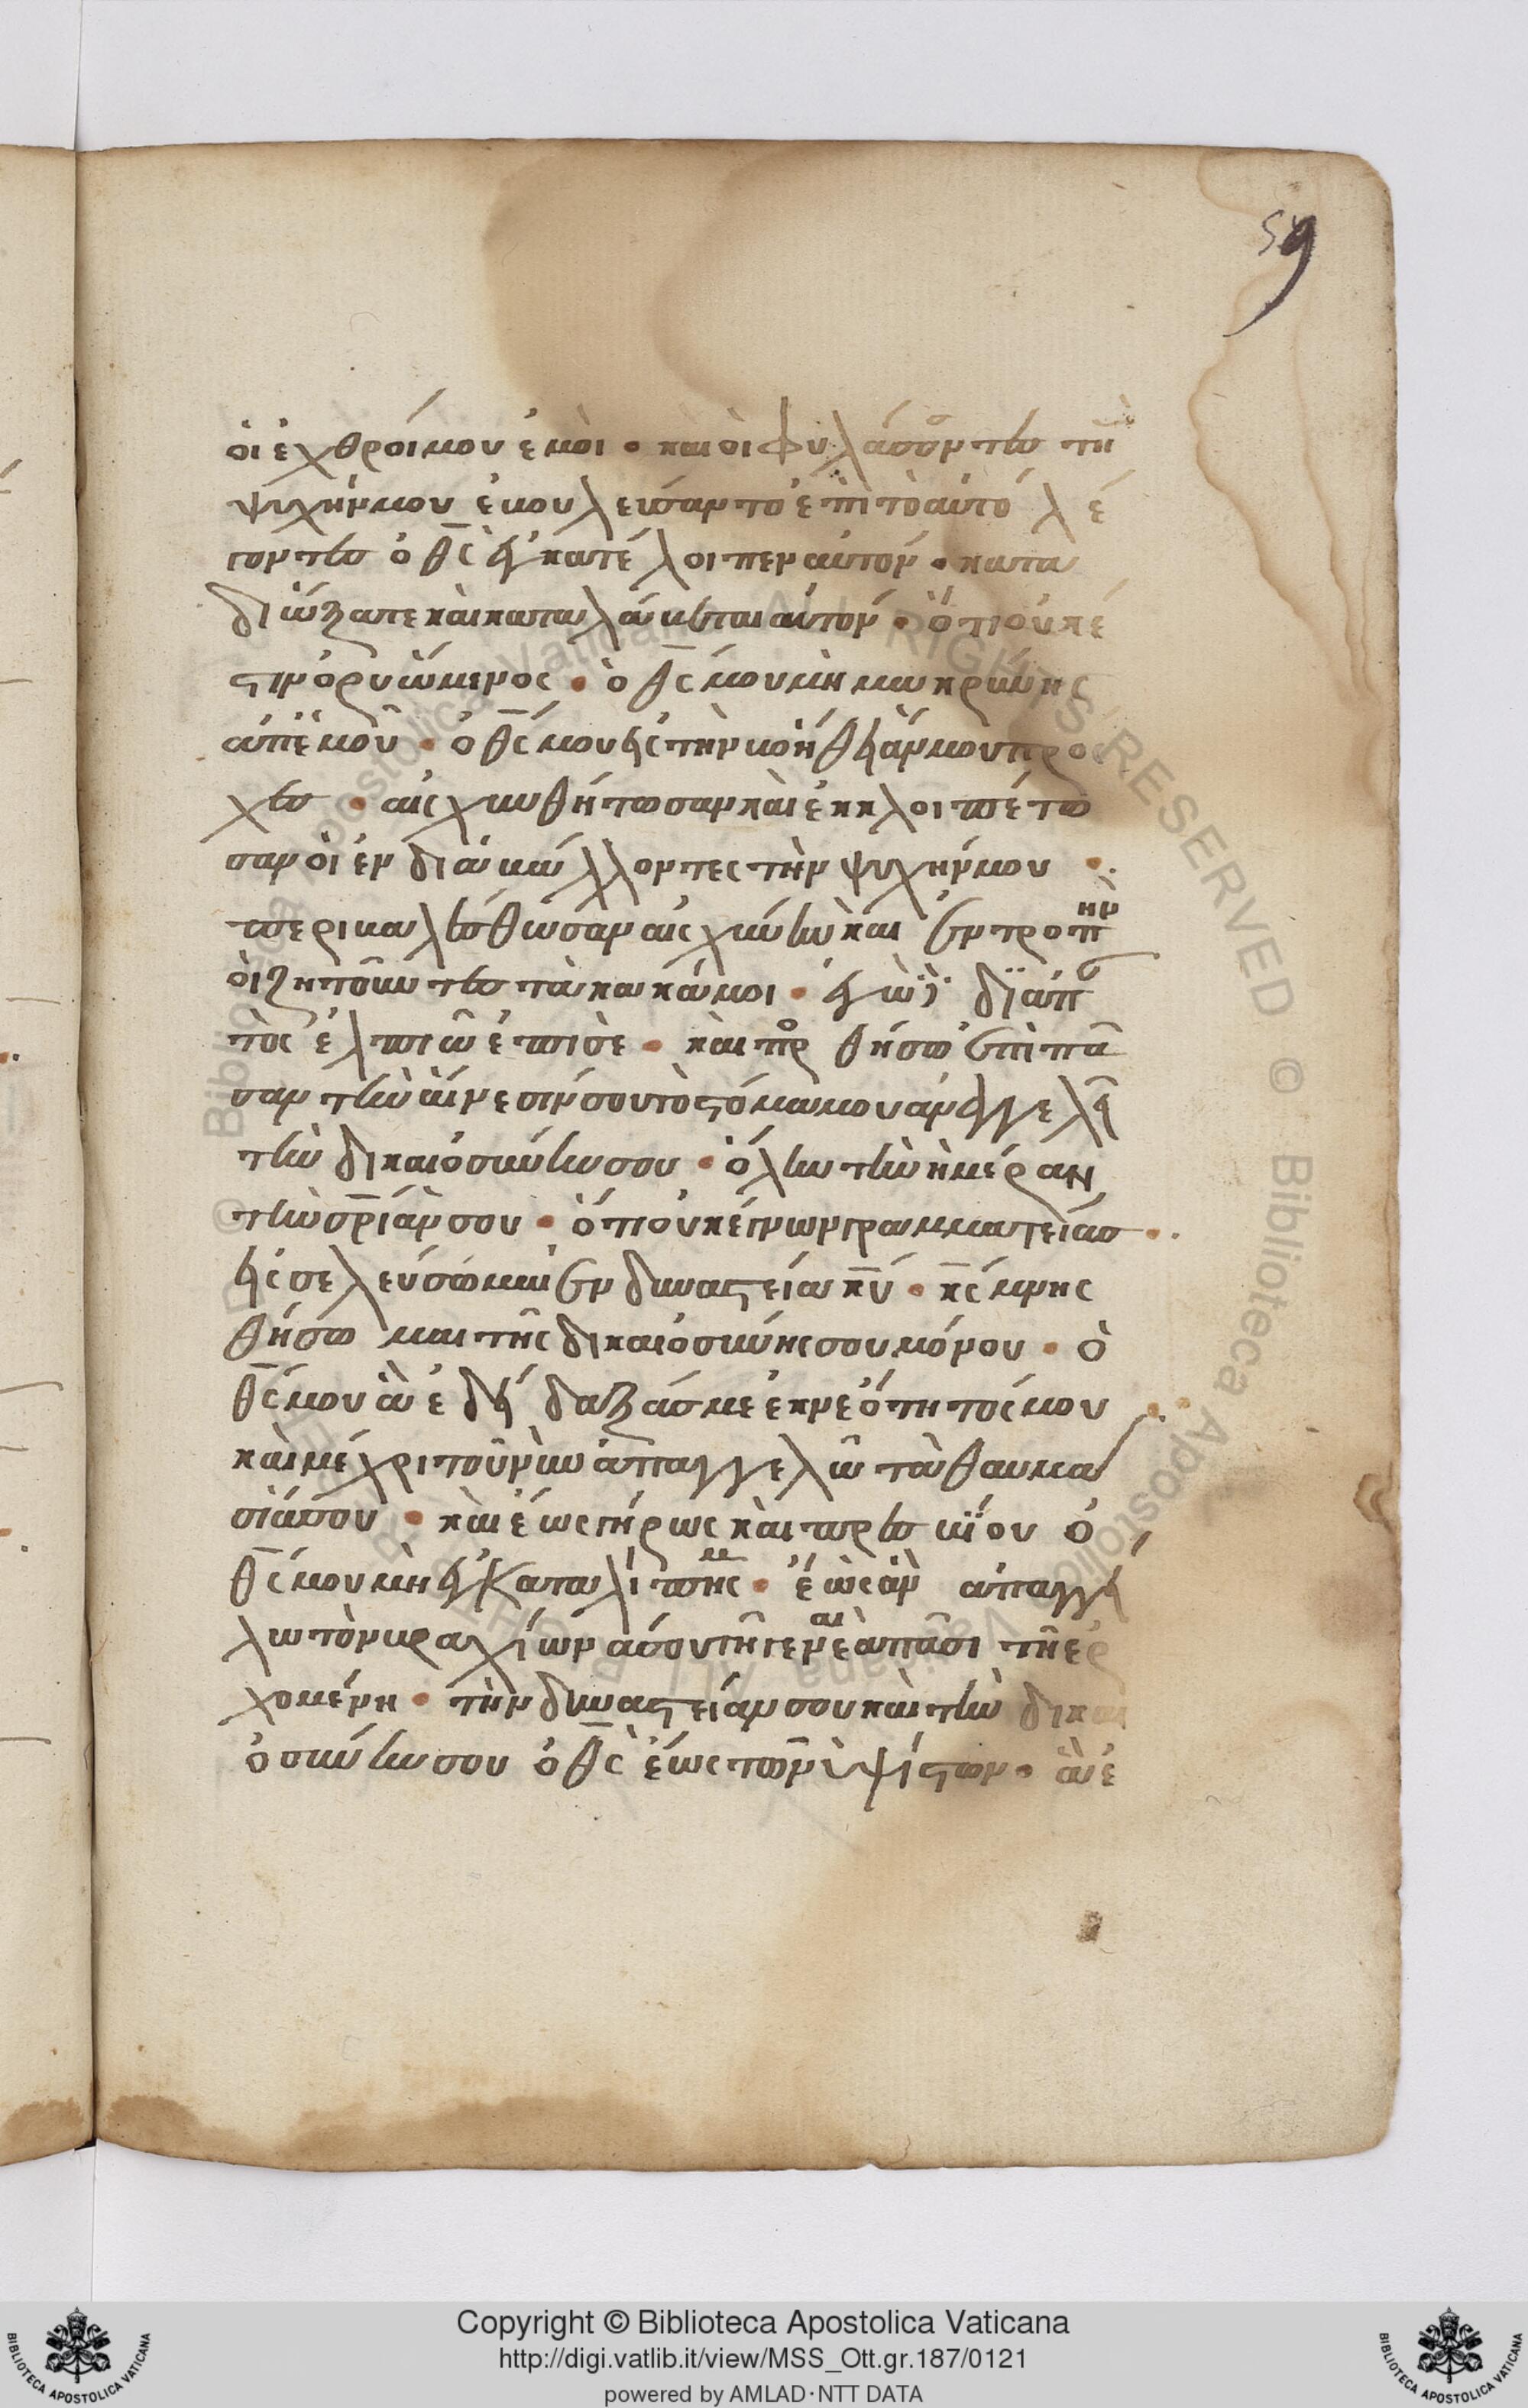 59
οἱ ἐχθροί μου ἐμοὶ · καὶ οἱ φυλάσσοντες τὴν
ψυχήν μου ἐβουλεύσαντο ἐπιτοαυτό λέ
γοντες ὁ θς ἐγκατέλοιπεν αὐτόν · κατα
διώξατε καὶ καταλάβεται αὐτόν · ὅτι οὐκέ
στιν ὁ ρυώμενος · ὁ θς μου μὴ μακρύνης
ἀπ' ἐμοῦ · ὁ θς μου εἰς τὴν βοήθειάν μου προς
χες · αἰσχυνθήτωσαν καὶ ἐκκλοιπέτω
σαν οἱ ἐνδιαβάλλοντες τὴν ψυχήν μου ·.
περιβαλέσθωσαν αἰσχύνην καὶ ἐντροπὴν
οἱ ζητοῦντες τὰ κακά μοι · ἐγὼ δὲ διαπαν
τὸς ἐλπιῶ ἐπι σὲ · καὶ προσθήσω ἐπὶ πᾶ
σαν τὴν αἴνεσίν σου τὸ στόμα μου ἀναγγελεῖ
τὴν δικαιοσύνην σου · ὅλην τὴν ἡμέραν
τὴν σρίαν σου · ὅτι οὐκ ἔγνων γραμματείας ·.
εἰσελεύσωμαι ἐν δυναστεία κυ · κε μνησ
θήσωμαι τῆς δικαιοσύνης σου μόνου · ὁ
θς μου ἃ ἐδίδαξάς με ἐκ νεότητός μου ·.
καὶ μέχρι τοῦ νῦν ἀπαγγελῶ τὰ θαυμα
σιά σου · καὶ ἕως γήρως καὶ πρεσβίου ὁ
θς μου μὴ ἐγκαταλίπης με · ἕως ἂν ἀπαγγεί
λω τὸν βραχίωνά σου τῆ γενεᾶ πάση τῆ ἐρ
χομένη · τὴν δυναστείαν σου καὶ τὴν δικαι
οσύνην σου ὁ θς ἕως τῶν ὑψίστων · ἃ ἐ
Copyright © Biblioteca Apostolica Vaticana
http://digi.vatlib.it/view/MSS_Ott.gr.187/0121
powered by AMLAD·NTT DATA